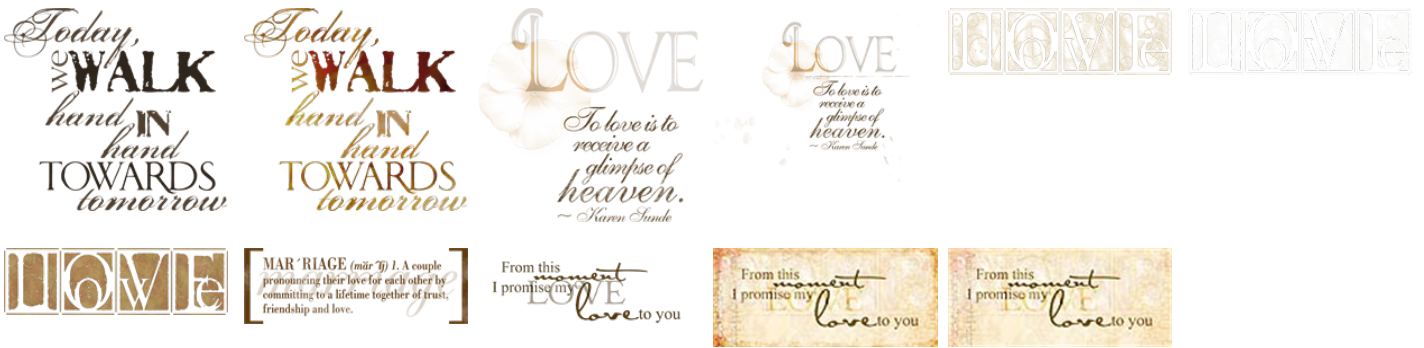 Today,
we WALK
hand IN
hand
TOWARDS
tomorrow
Today,
we WALK
hand IN
hand
TOWARDS
tomorrow
LOVE
To love is to
receive a
glimpse of
heaven.
~ Karen Sunde
LOVE
To love is to
receive a
glimpse of
heaven.
~ Karen Sunde
LOVe
LOVe
LOVe
marriage
MAR´RIAGE (mărˊĭj) 1. A couple
pronouncing their love for each other by
committing to a lifetime together of trust,
friendship and love.
From this
moment
I promise my
LOVE
love to you
From this
moment
I promise my
LOVE
love to you
From this
moment
I promise my
LOVE
love to you